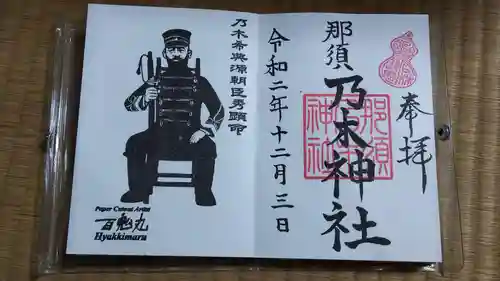 奉拝
那須乃木神社
那須
乃木
神社
令和二年十二月三日
乃木希典源朝臣秀顕命
Paper Cutout Artist
百鬼丸
Hyakkimaru